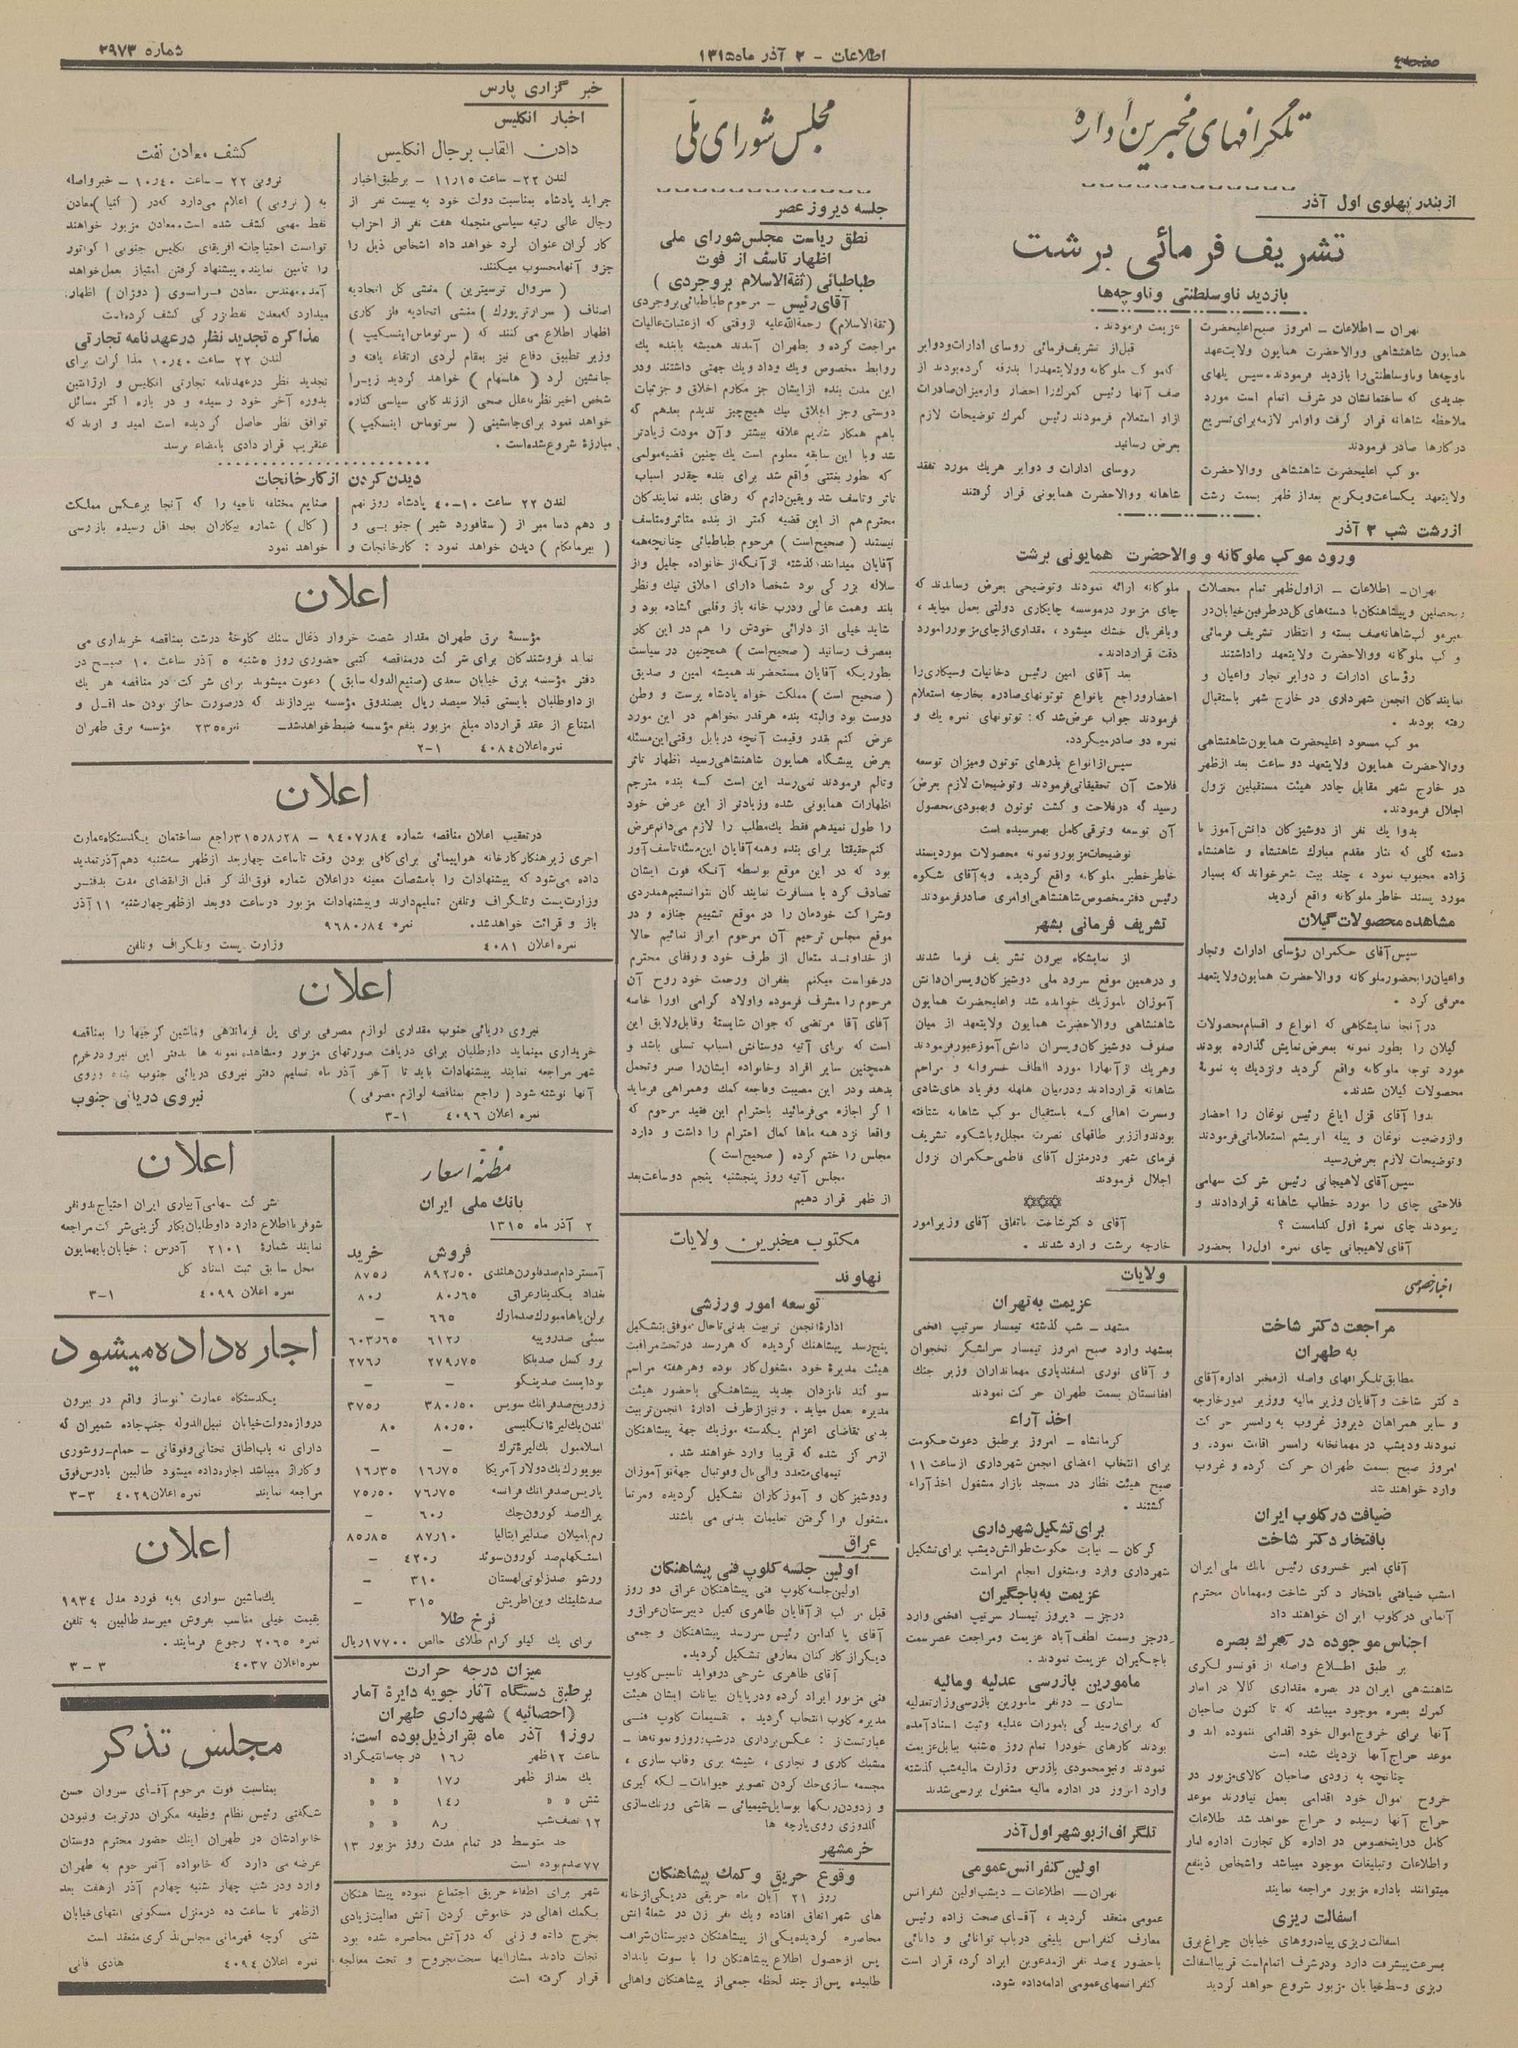 صفحه٤
اطلاعات - ۳ آذر ماه ۱۳۱۵
شماره ۳۹۷۳
تلگرافهای مخبرین اداره
از بندر پهلوی اول آذر
تشریف فرمائی برشت
بازدید ناو سلطنتی و ناوچه‌ها
تهران - اطلاعات - امروز صبح اعلیحضرت
همایون شاهنشاهی و والاحضرت همایون ولایتعهد
ناوچه‌ها و ناو سلطنتی را بازدید فرمودند. سپس پلهای
جدیدی که ساختمانشان در شرف اتمام است مورد
ملاحظه شاهانه قرار گرفت و اوامر لازمه برای تسریع
در کارها صادر فرمودند
موکب اعلیحضرت شاهنشاهی و والاحضرت
ولایتعهد یکساعت و یکربع بعد از ظهر بسمت رشت
عزیمت فرمودند.
قبل از تشریف فرمائی روسای ادارات و دوایر
که موکب ملوکانه و ولایتعهد را بدرقه کرده بودند از
صف آنها رئیس گمرک را احضار و از میزان صادرات
از او استعلام فرمودند رئیس گمرک توضیحات لازم
بعرض رسانید
روسای ادارات و دوایر هر یک مورد تفقد
شاهانه و والاحضرت همایونی قرار گرفتند
از رشت شب ۳ آذر
ورود موکب ملوکانه و والاحضرت همایونی برشت
تهران - اطلاعات - از اول ظهر تمام محصلات
و محصلین و پیشاهنگان با دسته‌های گل در طرفین خیابان در
معبر موکب شاهانه صف بسته و انتظار تشریف فرمائی
موکب ملوکانه و والاحضرت ولایتعهد را داشتند
رؤسای ادارات و دوایر تجار و اعیان و
نمایندگان انجمن شهرداری در خارج شهر باستقبال
رفته بودند.
موکب مسعود اعلیحضرت همایون شاهنشاهی
و والاحضرت همایون ولایتعهد دو ساعت بعد از ظهر
در خارج شهر مقابل چادر هیئت مستقبلین نزول
اجلال فرمودند.
بدوا یک نفر از دوشیزگان دانش آموز با
دسته گلی که نثار مقدم مبارک شاهنشاه و شاهنشاه
زاده محبوب نمود، چند بیت شعر خواند که بسیار
مورد پسند خاطر ملوکانه واقع گردید
مشاهده محصولات گیلان
سپس آقای حکمران رؤسای ادارات و تجار
و اعیان را بحضور ملوکانه و والاحضرت همایون ولایتعهد
معرفی کرد.
در آنجا نمایشگاهی که انواع و اقسام محصولات
گیلان را بطور نمونه بمعرض نمایش گذارده بودند
مورد توجه ملوکانه واقع گردید و نزدیک به نمونهٔ
محصولات گیلان شدند.
بدوا آقای قزل ایاغ رئیس نوغان را احضار
و از وضعیت نوغان و پیله ابریشم استعلاماتی فرمودند
و توضیحات لازم بعرض رسید
سپس آقای لاهیجانی رئیس شرکت سهامی
فلاحتی چای را مورد خطاب شاهانه قرار دادند و
فرمودند چای نمرهٔ اول کدامست؟
آقای لاهیجانی چای نمره اول را بحضور
ملوکانه ارائه نمودند و توضیحی بعرض رساندند که
چای مزبور در موسسه چایکاری دولتی بعمل میاید،
و با غربال خشک میشود، مقداری از چای مزبور را مورد
دقت قرار دادند.
بعد آقای امین رئیس دخانیات و سیگاری را
احضار و راجع بانواع توتونهای صادره بخارجه استعلام
فرمودند جواب عرض شد که: توتونهای نمره یک و
نمره دو صادر میگردد.
سپس از انواع بذرهای توتون و میزان توسعه
فلاحت آن تحقیقاتی فرمودند و توضیحات لازم بعرض
رسید که در فلاحت و کشت توتون و بهبودی محصول
آن توسعه و ترقی کامل بهمرسیده است
توضیحات مزبور و نمونه محصولات مورد پسند
خاطر خطیر ملوکانه واقع گردید. و به آقای شکوه
رئیس دفتر مخصوص شاهنشاهی اوامری صادر فرمودند
تشریف فرمائی بشهر
از نمایشگاه بیرون تشریف فرما شدند
و در همین موقع سرود ملی دوشیزگان و پسران دانش
آموزان باموزیک خوانده شد و اعلیحضرت همایون
شاهنشاهی و والاحضرت همایون ولایتعهد از میان
صفوف دوشیزگان و پسران دانش آموز عبور فرمودند
و هر یک از آنها را مورد الطاف خسروانه و مراحم
شاهانه قرار دادند و در میان هلهله و فریاد های شادی
و مسرت اهالی که باستقبال موکب شاهانه شتافته
بودند و از زیر طاقهای نصرت مجلل و باشکوه تشریف
فرمای شهر و در منزل آقای فاطمی حکمران نزول
اجلال فرمودند
آقای دکتر شاخت باتفاق آقای وزیر امور
خارجه برشت وارد شدند.
اخبار خصوصی
مراجعت دکتر شاخت
به طهران
مطابق تلگرافهای واصله از مخبر اداره آقای
دکتر شاخت و آقایان وزیر مالیه و وزیر امور خارجه
و سایر همراهان دیروز غروب به رامسر حرکت
نمودند و دیشب در مهمانخانه رامسر اقامت نمود. و
امروز صبح بسمت طهران حرکت کرده و غروب
وارد خواهند شد
ضیافت در کلوب ایران
بافتخار دکتر شاخت
آقای امیر خسروی رئیس بانک ملی ایران
امشب ضیافتی بافتخار دکتر شاخت و مهمانان محترم
آلمانی در کلوب ایران خواهند داد
اجناس موجوده در گمرک بصره
بر طبق اطلاع واصله از قونسولگری
شاهنشاهی ایران در بصره مقداری کالا در انبار
گمرک بصره موجود میباشد که تا کنون صاحبان
آنها برای خروج اموال خود اقدامی ننموده اند و
موعد حراج آنها نزدیک شده است
چنانچه به زودی صاحبان کالای مزبور در
خروج اموال خود اقدامی بعمل نیاورند موعد
حراج آنها رسیده و حراج خواهد شد اطلاعات
کامل در اینخصوص در اداره کل تجارت اداره آمار
و اطلاعات و تبلیغات موجود میباشد و اشخاص ذینفع
میتوانند باداره مزبور مراجعه نمایند
اسفالت ریزی
اسفالت ریزی پیاده‌روهای خیابان چراغ برق
بسرعت پیشرفت دارد و در شرف اتمام است قریبا اسفالت
ریزی وسط خیابان مزبور شروع خواهد گردید
ولایات
عزیمت به تهران
مشهد - شب گذشته تیمسار سرتیپ افخمی
بمشهد وارد صبح امروز تیمسار سرلشگر نخجوان
و آقای نوری اسفندیاری مهمانداران وزیر جنگ
افغانستان بسمت طهران حرکت نمودند
اخذ آراء
کرمانشاه - امروز برطبق دعوت حکومت
برای انتخاب اعضای انجمن شهرداری از ساعت ۱۱
صبح هیئت نظار در مسجد بازار مشغول اخذ آراء
گشتند.
برای تشکیل شهرداری
گرگان - نیابت حکومت طوالش دیشب برای تشکیل
شهرداری وارد و مشغول انجام امر است
عزیمت به باجگیران
درجز - دیروز تیمسار سرتیپ افخمی وارد
درجز و سمت لطف آباد عزیمت و مراجعت عصر سمت
باجگیران عزیمت نمودند.
مامورین بازرسی عدلیه و مالیه
ساری - دو نفر مامورین بازرسی وزارت عدلیه
که برای رسیدگی بامورات عدلیه و ثبت اسناد آمده
بودند کارهای خود را تمام روز ۵شنبه ببابل عزیمت
نمودند و نیز محمودی بازرس وزارت مالیه شب گذشته
وارد امروز در اداره مالیه مشغول بازرسی شدند
تلگراف از بوشهر اول آذر
اولین کنفرانس عمومی
تهران - اطلاعات - دیشب اولین کنفرانس
عمومی منعقد گردید، آقای صحت زاده رئیس
معارف کنفرانس بلیغی در باب توانائی و دانائی
با حضور ٤صد نفر از مدعوین ایراد کرد، قرار است
کنفرانسهای عمومی ادامه داده شود.
مجلس شورای ملی
جلسه دیروز عصر
نطق ریاست مجلس شورای ملی
اظهار تاسف از فوت
طباطبائی (ثقة الاسلام بروجردی)
آقای رئیس - مرحوم طباطبائی بروجردی
(ثقة الاسلام) رحمة الله علیه از وقتی که از عتبات عالیات
مراجعت کرده و بطهران آمدند همیشه با بنده یک
روابط مخصوص و یک وداد و یک جهتی داشتند و در
این مدت بنده از ایشان جز مکارم اخلاق و جزئیات
دوستی و جز اخلاق نیک هیچ چیز ندیدم بعد هم که
باهم همکار شدیم علاقه بیشتر و آن مودت زیادتر
شد و با این سابقه معلوم است یک چنین قضیه مولمی
که بطور بغتتی واقع شد برای بنده چقدر اسباب
تاثر و تاسف شد و یقین دارم که رفقای بنده نمایندگان
محترم هم از این قضیه کمتر از بنده متاثر و متاسف
نیستند (صحیح است) مرحوم طباطبائی چنانچه همه
آقایان میدانند گذشته از آنکه از خانواده جلیل و از
سلاله بزرگی بود شخصا دارای اخلاق نیک و نظر
بلند و همت عالی و درب خانه باز و قلبی گشاده بود و
شاید خیلی از دارائی خودش را هم در این کار
بمصرف رسانید (صحیح است) همچنین در سیاست
بطوریکه آقایان مستحضرند همیشه امین و صدیق
(صحیح است) مملکت خواه پادشاه پرست و وطن
دوست بود و البته بنده هر قدر بخواهم در این مورد
عرض کنم بقدر و قیمت آنچه در بابل وقتی این مسئله
بعرض پیشگاه همایون شاهنشاهی رسید اظهار تاثر
و تالم فرمودند نمی‌رسد این است که بنده مترجم
اظهارات همایونی شده و زیادتر از این عرض خود
را طول نمیدهم فقط یک مطلب را لازم میدانم عرض
کنم حقیقتا برای بنده و همه آقایان این مسئله تاسف آور
بود که در این موقع بواسطه آنکه فوت ایشان
تصادف کرد با مسافرت نمایندگان نتوانستیم همدردی
و شراکت خودمان را در موقع تشییع جنازه و در
موقع مجلس ترحیم آن مرحوم ابراز نمائیم حالا
از خداوند متعال از طرف خود و رفقای محترم
درخواست میکنم بغفران و رحمت خود روح آن
مرحوم را مشرف فرموده و اولاد گرامی اورا خاصه
آقای آقا مرتضی که جوان شایستهٔ و قابل و لایق این
است که برای آتیه دوستانش اسباب تسلی باشد و
همچنین سایر افراد و خانواده ایشان را صبر و تحمل
بدهد و در این مصیبت و فاجعه کمک و همراهی فرماید
اگر اجازه میفرمائید باحترام این فقید مرحوم که
واقعا نزد همه ماها کمال احترام را داشت و دارد
مجلس را ختم کرده (صحیح است)
مجلس آتیه روز پنجشنبه پنجم دو ساعت بعد
از ظهر قرار دهیم
مکتوب مخبرین ولایات
نهاوند
توسعه امور ورزشی
ادارهٔ انجمن تربیت بدنی تا حال موفق بتشکیل
پنج رسد پیشاهنگ گردیده که هر رسد در تحت مراقبت
هیئت مدیرهٔ خود مشغول کار بوده و هر هفته مراسم
سوگند نامزدان جدید پیشاهنگی با حضور هیئت
مدیره بعمل میاید. و نیز از طرف ادارهٔ انجمن تربیت
بدنی تقاضای اعزام یکدسته موزیک جهة پیشاهنگان
از مرکز شده که قریبا وارد خواهند شد.
تیمهای متعدد والی‌بال و فوتبال جهة نوآموزان
و دوشیزگان و آموزگاران تشکیل گردیده و مرتبا
مشغول فرا گرفتن تعلیمات بدنی می باشند
عراق
اولین جلسه کلوپ فنی پیشاهنگان
اولین جلسه کلوپ فنی پیشاهنگان عراق دو روز
قبل مرکب از آقایان طاهری کفیل دبیرستان عراق و
آقای یا کدامن رئیس سررسد پیشاهنگان و جمعی
دیگر از کارکنان معارفی تشکیل گردید.
آقای طاهری شرحی در فواید تاسیس کلوپ
فنی مزبور ایراد کرده و در پایان بیانات ایشان هیئت
مدیره کلوپ انتخاب گردید. تقسیمات کلوپ فنی
عبارتست از: عکس برداری در شب و روز و نمونه‌ها -
مشبک کاری و نجاری، شیشه بری و قاب سازی،
مجسمه سازی حک کردن تصویر حیوانات - لکه گیری
و زدودن رنگها بوسایل شیمیائی - نقاشی و رنگ سازی
گلدوزی روی پارچه ها
خرمشهر
وقوع حریق و کمک پیشاهنگان
روز ۲۱ آبان ماه حریقی در یکی از خانه
های شهر اتفاق افتاده و یک نفر زن در شعلهٔ آتش
محاصره گردیده یکی از پیشاهنگان دبیرستان شرافت
پس از حصول اطلاع پیشاهنگان را با سوت بامداد
طلبیده پس از چند لحظه جمعی از پیشاهنگان و اهالی
شهر برای اطفاء حریق اجتماع نموده پیشاهنگان
بکمک اهالی در خاموش کردن آتش فعالیت زیادی
بخرج داده و زنی که در آتش محاصره شده بود
نجات دادند مشارالیها سخت مجروح و تحت معالجه
قرار گرفته است
خبر گزاری پارس
اخبار انگلیس
دادن القاب برجال انگلیس
لندن ۲۲- ساعت ۱۱٫۱۵ - بر طبق اخبار
جراید پادشاه بمناسبت دولت خود به بیست نفر از
رجال عالی رتبه سیاسی منجمله هفت نفر از احزاب
کارگران عنوان لرد خواهد داد اشخاص ذیل را
جزو آنها محسوب میکنند.
(سروال ترسیترین) منشی کل اتحادیه
اصناف (سر ارتر پورک) منشی اتحادیه فلز کاری
اظهار اطلاع می کنند که (سر توماس اینسکیپ)
وزیر تطبیق دفاع نیز بمقام لردی ارتقاء یافته و
جانشین لرد (هالشهام) خواهد گردید زیرا
شخص اخیر نظر بعلل صحی از زندگانی سیاسی کناره
خواهد نمود برای جانشینی (سر توماس اینسکیپ)
مبارزهٔ شروع شده است.
کشف معادن نفت
نروبی ۲۲ - ساعت ۱۰٫٤۰ - خبر واصله
به (نروبی) اعلام می‌دارد که در (کنیا) معادن
نفط مهمی کشف شده است. معادن مزبور خواهند
توانست احتیاجات افریقای انگلیس جنوبی اکواتور
را تامین نمایند. پیشنهاد گرفتن امتیاز بعمل خواهد
آمد. مهندس معادن فرانسوی (دوزان) اظهار
میدارد که معدن نفط بزرگی کشف کرده است
مذاکره تجدید نظر در عهدنامه تجارتی
لندن ۲۲ ساعت ۱۰٫٤۰ مذاکرات برای
تجدید نظر در عهدنامه تجارتی انگلیس و ارژانتین
بدوره آخر خود رسیده و در باره اکثر مسائل
توافق نظر حاصل گردیده است امید وارند که
عنقریب قرار دادی بامضاء برسد
دیدن کردن از کارخانجات
لندن ۲۲ ساعت ۱۰-٤۰ پادشاه روز نهم
و دهم دسامبر از (ستافورد شیر) جنوبی و
(بیرمنگام) دیدن خواهد نمود: کارخانجات و
صنایع مختلفه ناحیه را که آنجا برعکس مملکت
(کال) شماره بیکاران بحد اقل رسیده بازرسی
خواهد نمود
اعلان
مؤسسهٔ برق طهران مقدار شصت خروار ذغال سنگ کلوخهٔ درشت بمناقصه خریداری می
نماید فروشندگان برای شرکت در مناقصه کتبی حضوری روز ۵شنبه ۵ آذر ساعت ۱۰ صبح در
دفتر مؤسسه برق خیابان سعدی (صنیع الدوله سابق) دعوت میشوند برای شرکت در مناقصه هر یک
از داوطلبان بایستی قبلا سیصد ریال بصندوق مؤسسه بپردازند که درصورت حائز بودن حد اقل و
امتناع از عقد قرارداد مبلغ مزبور بنفع مؤسسه ضبط خواهد شد- نمره ۲۳۵ مؤسسه برق طهران
نمره اعلان ٤۰۸٤ ۲-۱
اعلان
در تعقیب اعلان مناقصه شماره ۹٤۰۷٫۸٤ - ۳۱۵٫۸٫۲۸ راجع ساختمان یکدستگاه عمارت
اجری زیر هنگار کارخانه هواپیمائی برای کافی بودن وقت تا ساعت چهار بعد از ظهر سه‌شنبه دهم آذر تمدید
داده می‌شود که پیشنهادات را با مشخصات معینه در اعلان شماره فوق الذکر قبل از انقضای مدت بدفتر
وزارت پست و تلگراف و تلفن تسلیم دارند و پیشنهادات مزبور در ساعت دو بعد از ظهر چهارشنبه ۱۱ آذر
باز و قرائت خواهد شد. نمره ۹٦۸۰٫۸٤
نمره اعلان ٤۰۸۱ وزارت پست و تلگراف و تلفن
اعلان
نیروی دریائی جنوب مقداری لوازم مصرفی برای پل فرماندهی و ماشین کرجیها را بمناقصه
خریداری مینماید داوطلبان برای دریافت صورتهای مزبور و مشاهده نمونه ها بدفتر این نیرو در خرم
شهر مراجعه نمایند پیشنهادات باید تا آخر آذر ماه تسلیم دفتر نیروی دریائی جنوب شده و روی
آنها نوشته شود (راجع بمناقصه لوازم مصرفی) نیروی دریائی جنوب
نمره اعلان ٤۰۹٦ ۳-۱
مظنهٔ اسعار
بانک ملی ایران
۲ آذر ماه ۱۳۱۵
فروش خرید
آمستردام صد فلورن هلندی ۸۹۲٫۵۰ ۸۷۵٫
بغداد یکدینار عراق ۸۰٫٦۵ ۸۰٫
برلن یا هامبورک صدمارک ٦٦۵ -
بمبئی صد روپیه ٦۱۲٫ ٦۰۳٫٦۵
بروکسل صد بلکا ۲۷۹٫۷۵ ۲۷٦٫
بوداپست صد پنگو - -
زوریخ صد فرانک سویس ۳۸۰٫۵۰ ۳۷۵٫
لندن یک لیرهٔ انگلیسی ۸۰٫۵۰ ۸۰
اسلامبول یک لیرهٔ ترک - -
نیویورک یک دولار آمریکا ۱٦٫۷۵ ۱٦٫۳۵
پاریس صد فرانک فرانسه ۷٦٫۷۵ ۷۵٫۵۰
پراک صد کورون چک ٦۰٫ -
رم یا میلان صد لیر ایتالیا ۸۷٫۱۰ ۸۵٫۸۵
استکهلم صد کورون سوئد ٤۲۰٫ -
ورشو صد زلوتی لهستان ۳۱۰ -
صد شلینک وین اطریش ۳۱۵ -
نرخ طلا
برای یک کیلو گرام طلای خالص ۱۷۷۰۰ ریال
میزان درجه حرارت
بر طبق دستگاه آثار جویه دایرهٔ آمار
(احصائیه) شهرداری طهران
روز ۱ آذر ماه بقرار ذیل بوده است:
ساعت ۱۲ ظهر ۱٦٫ درجه سانتیگراد
یک بعد از ظهر ۱۷٫ « «
شش « ۱٤٫ « «
۱۲ نصف شب ۸٫ « «
حد متوسط در تمام مدت روز مزبور ۱۳
۷۷ صدم بوده است
اعلان
شرکت سهامی آبیاری ایران احتیاج بدو نفر
شوفر با اطلاع دارد داوطلبان بکارگزینی شرکت مراجعه
نمایند شمارهٔ ۲۱۰۱ آدرس: خیابان پا بهمایون
محل سابق ثبت اسناد کل
نمره اعلان ٤۰۹۹ ۳-۱
اجاره داده میشود
یکدستگاه عمارت نوساز واقع در بیرون
دروازه دولت خیابان نبیل الدوله جنب جاده شمیران که
دارای نه باب اطاق تحتانی و فوقانی - حمام - روشوری
و کاراژ میباشد اجاره داده میشود طالبین بادرس فوق
مراجعه نمایند نمره اعلان ٤۰۲۹ ۳-۳
اعلان
یک ماشین سواری به‌به فورد مدل ۱۹۳٤
بقیمت خیلی مناسب بفروش میرسد طالبین به تلفن
نمره ۲۰٦۵ رجوع فرمایند.
نمره اعلان ٤۰۳۷ ۳-۳
مجلس تذکر
بمناسبت فوت مرحوم آقای سروان حسن
شگفتی رئیس نظام وظیفه مکران در تربت و نبودن
خانوادشان در طهران اینک حضور محترم دوستان
عرضه می دارد که خانواده آنمرحوم به طهران
وارد و در شب چهار شنبه چهارم آذر از هفت بعد
از ظهر تا ساعت ده در منزل مسکونی انتهای خیابان
شنی کوچه قهرمانی مجلس تذکری منعقد است
نمره اعلان ٤۰۹٤ هادی فانی